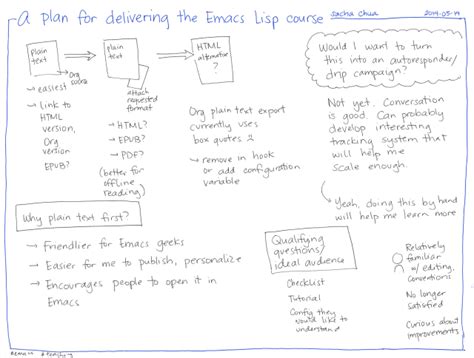 A plan for delivering the Emacs Lisp course
sacha chua
2014-05-19
plain
text
Org
source
→ easiest
→ link to
HTML
version,
Org
version
EPUB?
plain
text
attach
requested
format
→ HTML?
→ EPUB?
→ PDF?
(better for
offline
reading)
HTML
alternative
?
Org plain text export
currently uses
box quotes
→ remove in hook
or add configuration
variable
Would I want to turn
this into an autoresponder/
drip campaign?
Not yet. Conversation
is good. Can probably
develop interesting
tracking system that
will help me
scale enough.
Yeah, doing this by hand
will help me learn more
Why plain text first?
→ Friendlier for Emacs geeks
→ Easier for me to publish, personalize
→ Encourages people to open it in
Emacs
Qualifying
questions/
ideal audience
Checklist
Tutorial
Config they
would like to
understand
Relatively
familiar
w/ editing,
conventions
No longer
satisfied
Curious about
improvements